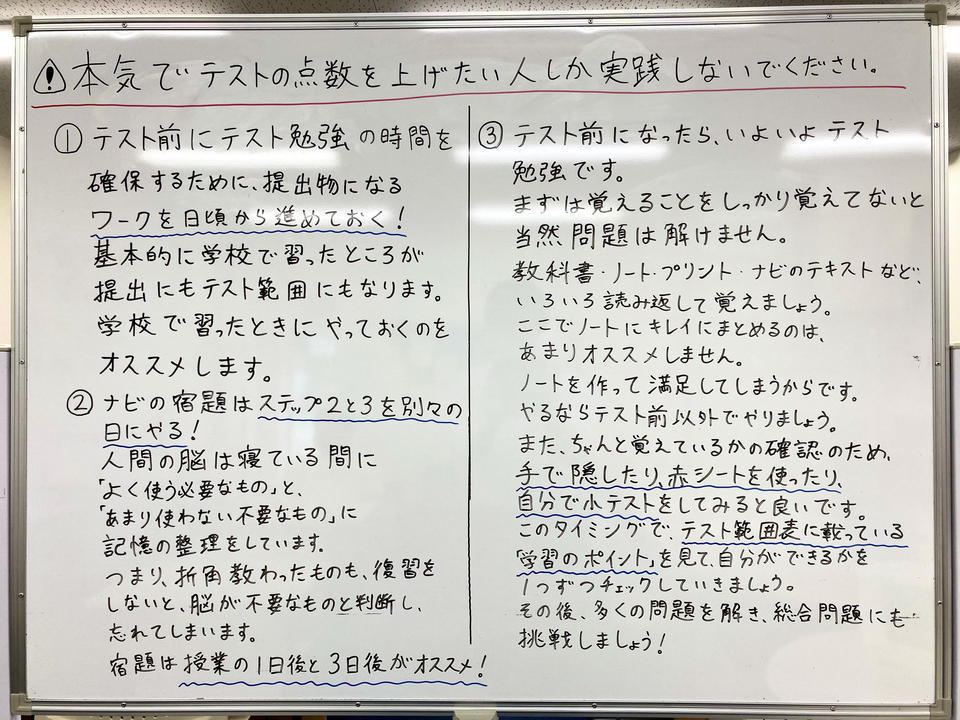 本気でテストの点数を上げたい人しか実践しないでください。
① テスト前にテスト勉強の時間を
確保するために、提出物になる
ワークを日頃から進めておく！
基本的に学校で習ったところが
提出にもテスト範囲にもなります。
学校で習ったときにやっておくのを
オススメします。
② ナビの宿題はステップ2と3を別々の
日にやる！
人間の脳は寝ている間に
「よく使う必要なもの」と、
「あまり使わない不要なもの」に
記憶の整理をしています。
つまり、折角教わったものも、復習を
しないと、脳が不要なものと判断し、
忘れてしまいます。
宿題は授業の1日後と3日後がオススメ！
③ テスト前になったら、いよいよテスト
勉強です。
まずは覚えることをしっかり覚えてないと
当然問題は解けません。
教科書・ノート・プリント・ナビのテキストなど、
いろいろ読み返して覚えましょう。
ここでノートにキレイにまとめるのは、
あまりオススメしません。
ノートを作って満足してしまうからです。
やるならテスト前以外でやりましょう。
また、ちゃんと覚えているかの確認のため、
手で隠したり、赤シートを使ったり、
自分で小テストをしてみると良いです。
このタイミングで、テスト範囲表に載っている
「学習のポイント」を見て、自分ができるかを
1つずつチェックしていきましょう。
その後、多くの問題を解き、総合問題にも
挑戦しましょう！